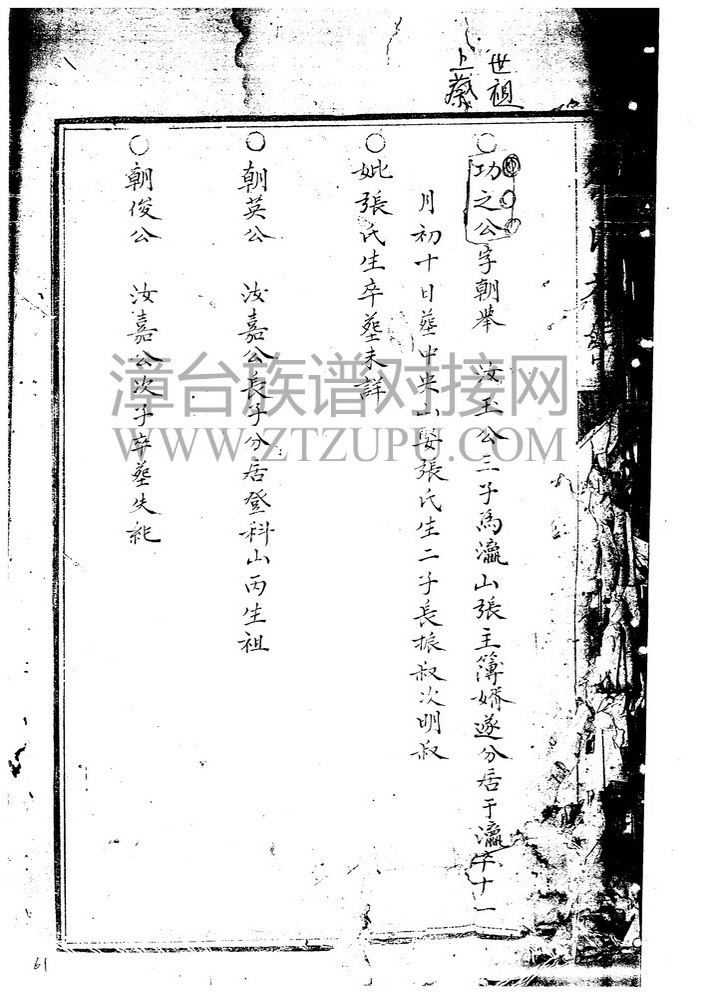 世祖
上蔡
○功之公字朝举 汝玉公三子為瀛山張主簿婿遂分居于瀛卒十一
月初十日葬中央山娶張氏生二子長振叔次明叔
○妣張氏生卒葬未詳
○朝英公 汝嘉公長子分居登科山丙生祖
○朝俊公 汝嘉公次子卒葬失紀
漳台族谱对接网
WWW.ZTZUPU.COM
61